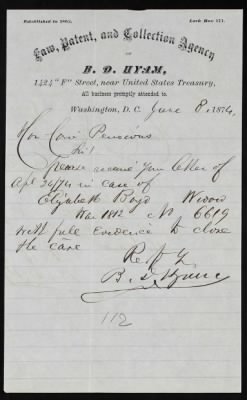 Established in 1865.
Lock Box 177.
Law, Patent, and Collection Agency
OF
B. D. HYAM,
1424 "F" Street, near United States Treasury,
All business promptly attended to.
Washington, D. C. June 8, 1874,
Hon Com Pensions
Sir!
receive your letter of
Apl 24/74 in case of
Elizabeth Boyd Widow
War 1812 No 6619
with full Evidence to close
the case
B. D. Hyam
112